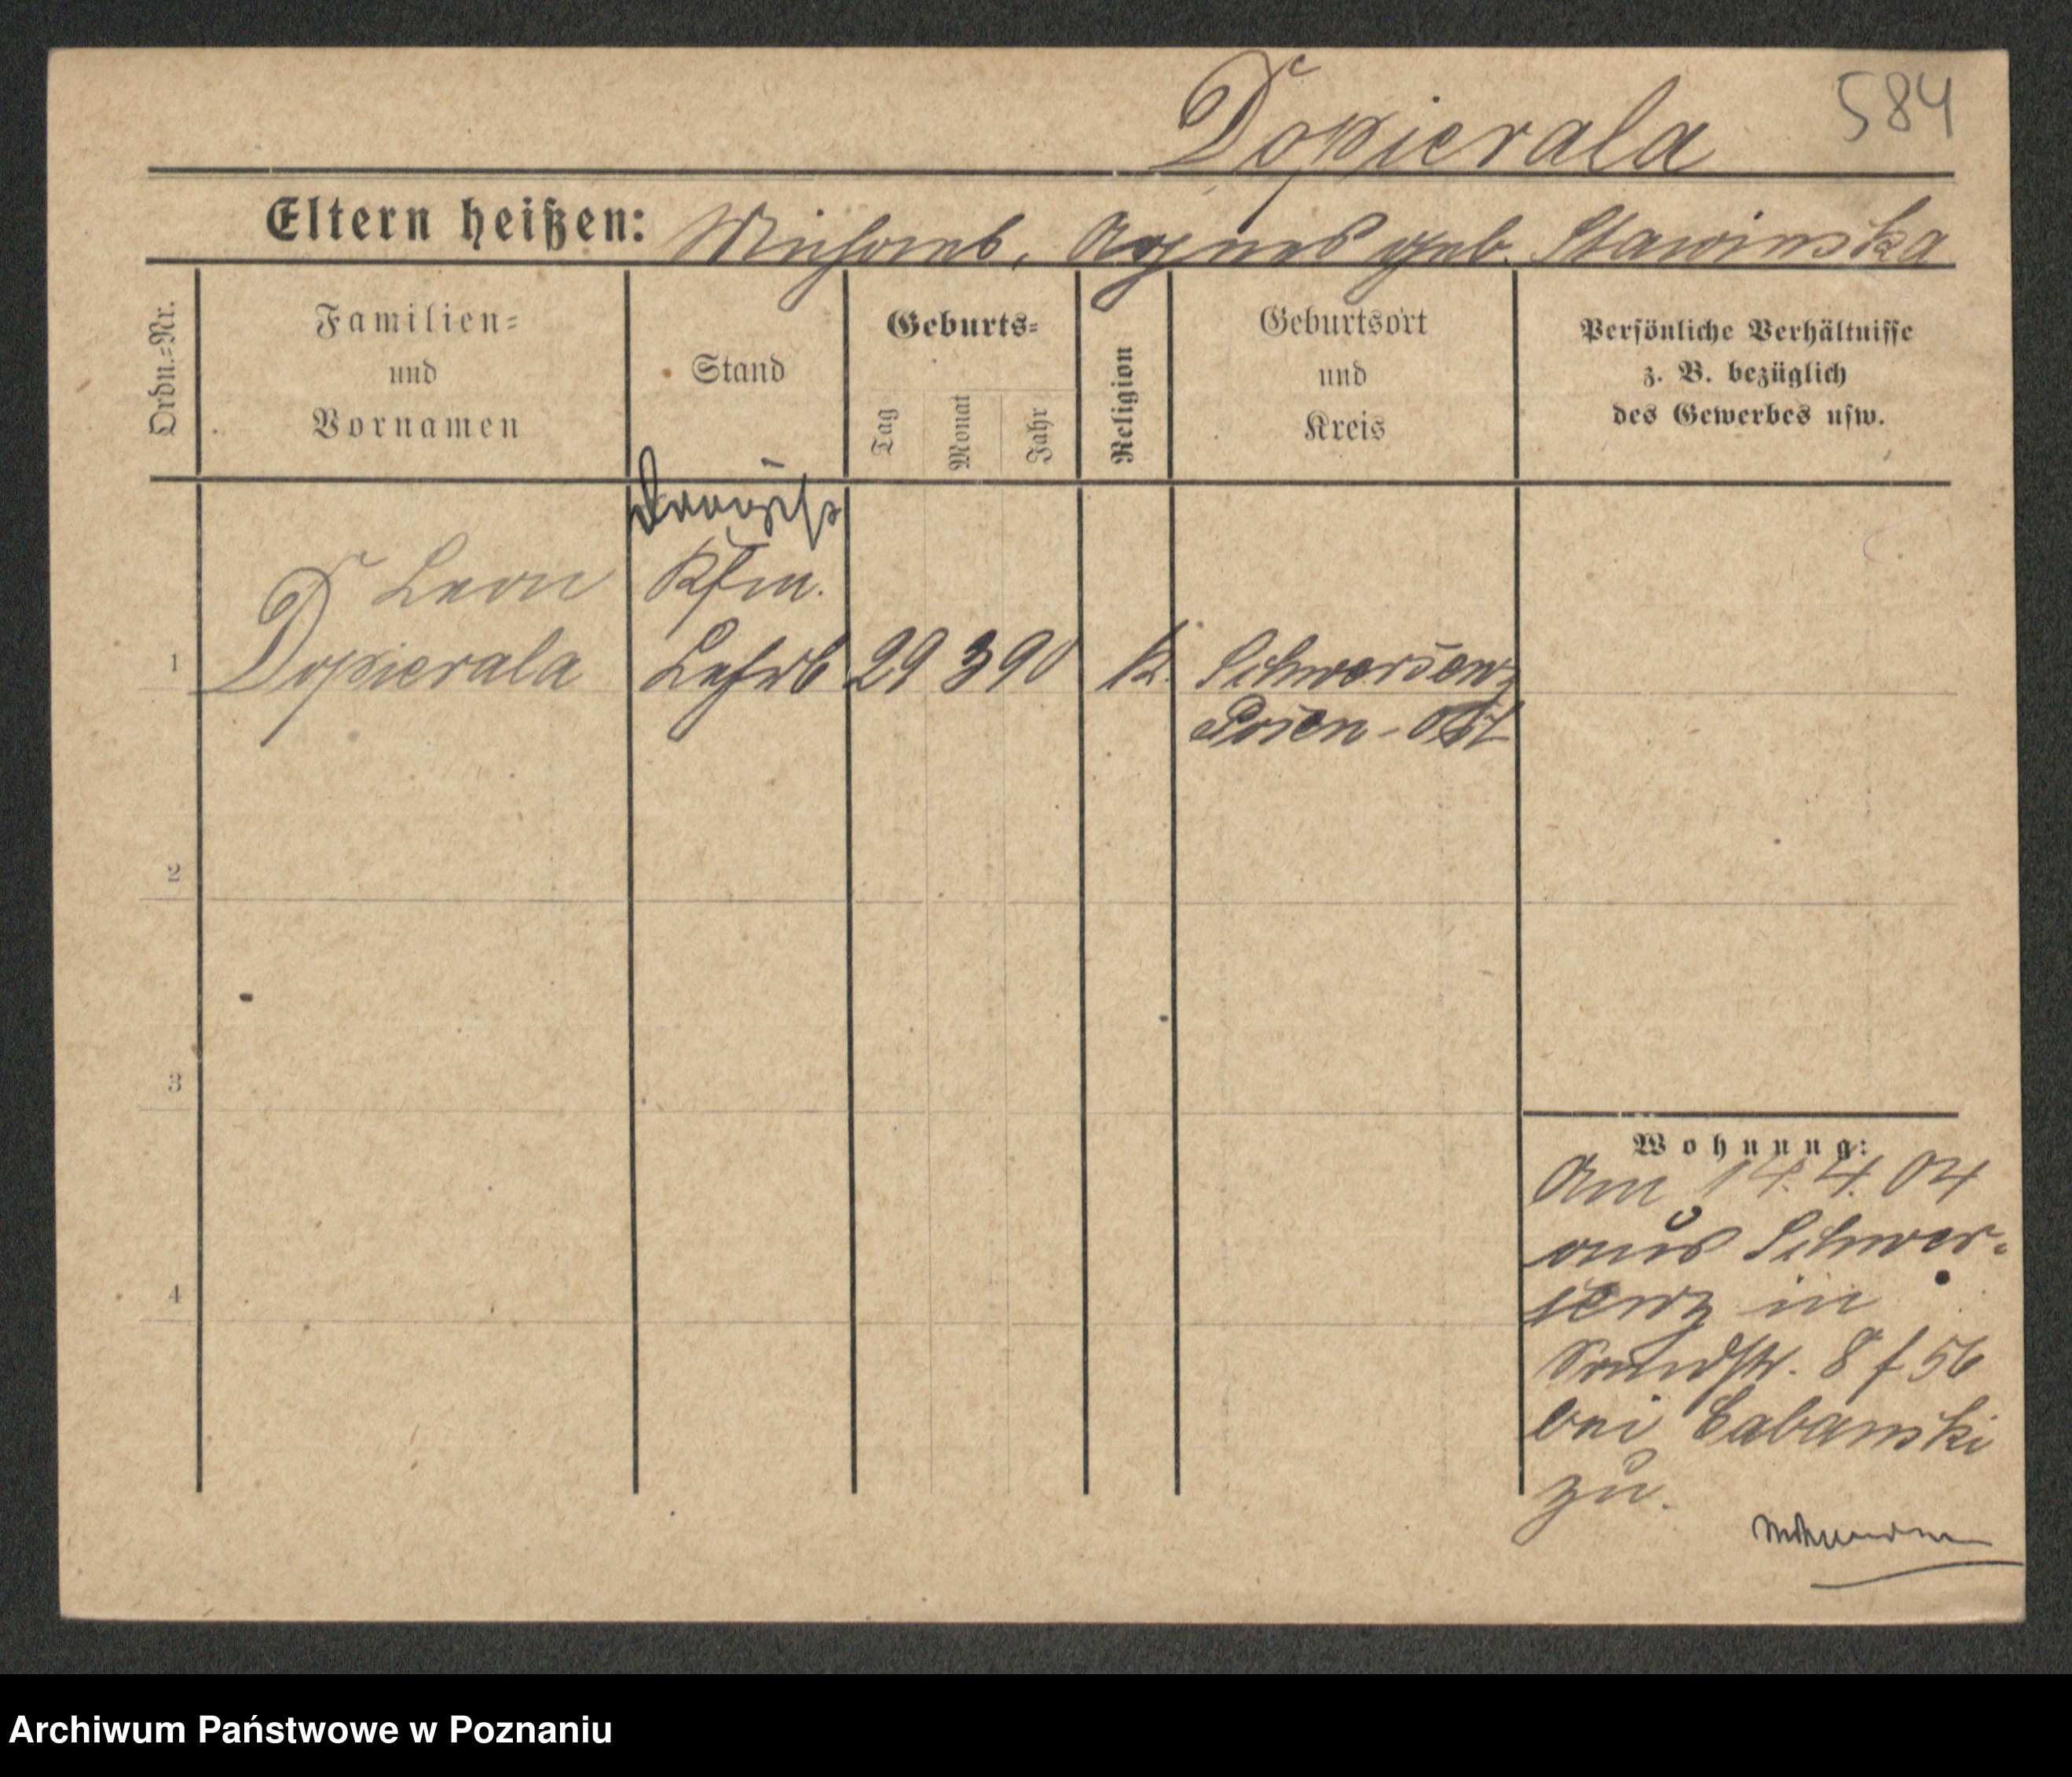 584
Dopierala
Eltern heißen: Michael, Agnes geb. Stawinska
Ordn.=Nr.
Familien=
und
Vornamen
Stand
Geburts=
Tag
Monat
Jahr
Religion
Geburtsort
und
Kreis
Persönliche Verhältnisse
z. B. bezüglich
des Gewerbes usw.
Leon
Kfm.
1 Dopierala Lehrl 29 3 90 k. Schwersenz
Posen-Ost
2
3
4
Wohnung:
Am 14.4.04
aus Schwer-
senz in
8 f 56
bei Cabanski
zu.
Archiwum Państwowe w Poznaniu